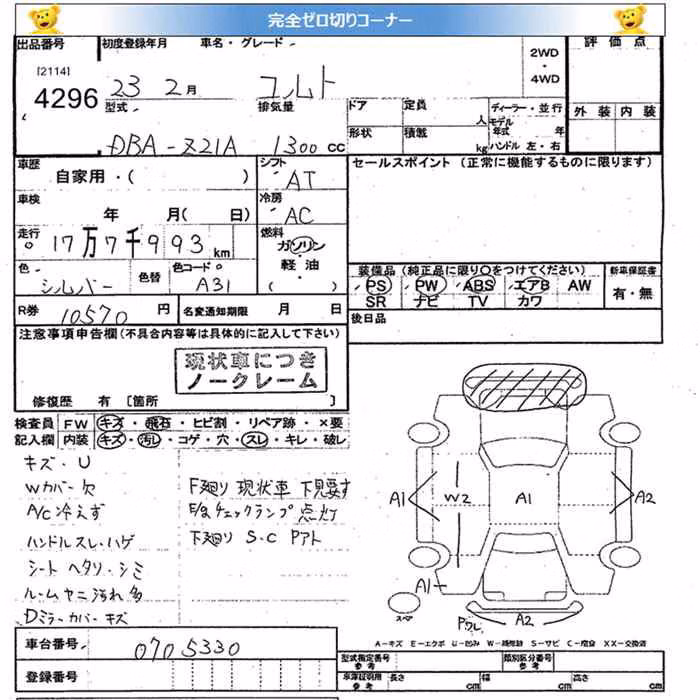 完全ゼロ切りコーナー
出品番号 初度登録年月 車名・グレード 評価点
[2114]
4296
23 2月 コルト
2WD
・
4WD
型式 排気量 ドア 定員 人 ディーラー・並行 外装 内装
DBA-Z21A 1300 CC
形状 積載 kg モデル年式 年
ハンドル 左・右
車歴 シフト セールスポイント (正常に機能するものに限ります)
自家用・( ) AT
車検 冷房
年 月( 日) AC
走行 燃料
17万7千993 km ガソリン
軽油・
( )
色 色替 色コード
シルバー A31
装備品 (純正品に限り○をつけてください) 新車保証書
PS PW ABS エアB AW 有・無
SR ナビ TV カワ
R券 10570 円 名変通知期限 月 日
後日品
注意事項申告欄(不具合内容等は具体的に記入して下さい)
現状車につき
ノークレーム
修復歴 有 [箇所 ]
検査員 FW キズ・飛石・ヒビ割・リペア跡・×要
記入欄 内装 キズ・汚レ・コゲ・穴・スレ・キレ・破レ
キズ・U
Wカバー欠
A/C冷えず
ハンドルスレ・ハゲ
シートヘタリ・シミ
ルームヤニ汚れ多
Dミラーカバーキズ
F廻り現状車下見要す
E/gチェックランプ点灯
下廻り S・C Pアト
A1 W2 A1 A2
A1
スペア
Pワレ A2
A-キズ E-エクボ U-凹み W-補修跡 S-サビ C-腐食 XX-交換済
車台番号 0705330
登録番号
型式指定番号 参考 類別区分番号 参考
車庫証明用 参考 長さ cm 幅 cm 高さ cm